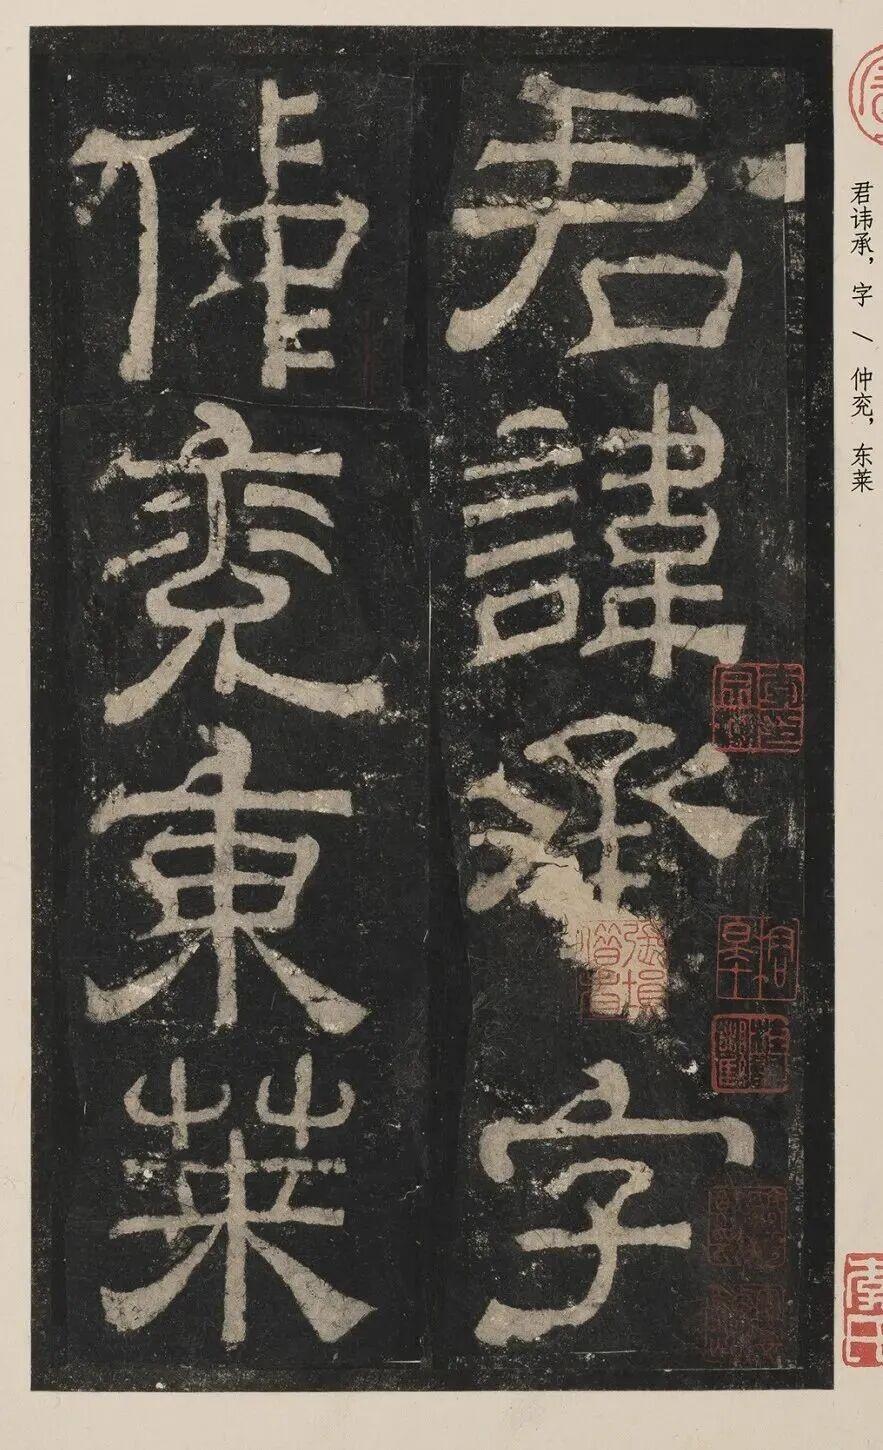 君讳承，字／仲兖，东莱
君諱承字
仲兖東萊